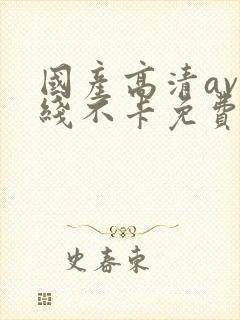 國產高清av
綫不卡免費
史春東